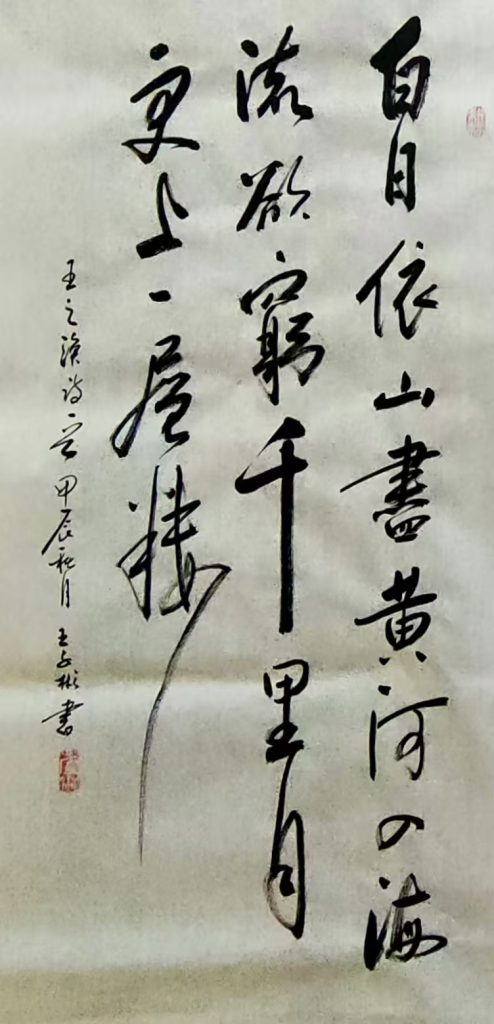 白日依山盡黄河入海
流欲窮千里目
更上一層樓
王之渙詩一首甲辰秋月王子彬書